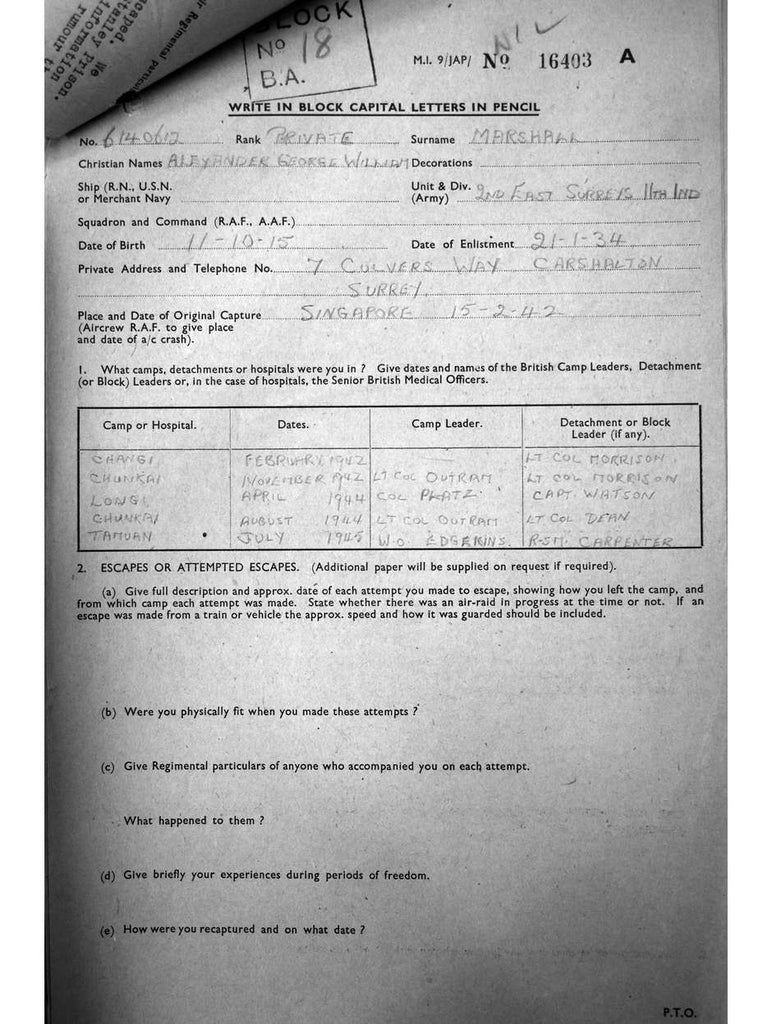 Regimental particul
caped. We
tanley Prison.
information
rumour t
BLOCK
No 18
B.A.
NIL
M.I. 9/JAP/ No 16403 A
WRITE IN BLOCK CAPITAL LETTERS IN PENCIL
No. 6140612 Rank PRIVATE Surname MARSHALL
Christian Names ALEXANDER GEORGE WILLIAM Decorations
Ship (R.N., U.S.N. or Merchant Navy
Unit & Div. (Army) 2ND EAST SURREYS 11TH IND
Squadron and Command (R.A.F., A.A.F.)
Date of Birth 11-10-15 Date of Enlistment 21-1-34
Private Address and Telephone No. 7 CULVERS WAY CARSHALTON
SURREY.
Place and Date of Original Capture SINGAPORE 15-2-42
(Aircrew R.A.F. to give place
and date of a/c crash).
1. What camps, detachments or hospitals were you in ? Give dates and names of the British Camp Leaders, Detachment
(or Block) Leaders or, in the case of hospitals, the Senior British Medical Officers.
Camp or Hospital. Dates. Camp Leader. Detachment or Block Leader (if any).
CHANGI FEBRUARY 1942 LT COL MORRISON
CHUNKAI NOVEMBER 1942 LT COL OUTRAM LT COL MORRISON
LONGI APRIL 1944 COL PLATZ. CAPT. WATSON
CHUNKAI AUGUST 1944 LT COL OUTRAM LT COL DEAN
TAMUAN JULY 1945 W.O. EDGEKINS. R.SM. CARPENTER
2. ESCAPES OR ATTEMPTED ESCAPES. (Additional paper will be supplied on request if required).
(a) Give full description and approx. date of each attempt you made to escape, showing how you left the camp, and
from which camp each attempt was made. State whether there was an air-raid in progress at the time or not. If an
escape was made from a train or vehicle the approx. speed and how it was guarded should be included.
(b) Were you physically fit when you made these attempts ?
(c) Give Regimental particulars of anyone who accompanied you on each attempt.
What happened to them ?
(d) Give briefly your experiences during periods of freedom.
(e) How were you recaptured and on what date ?
P.T.O.